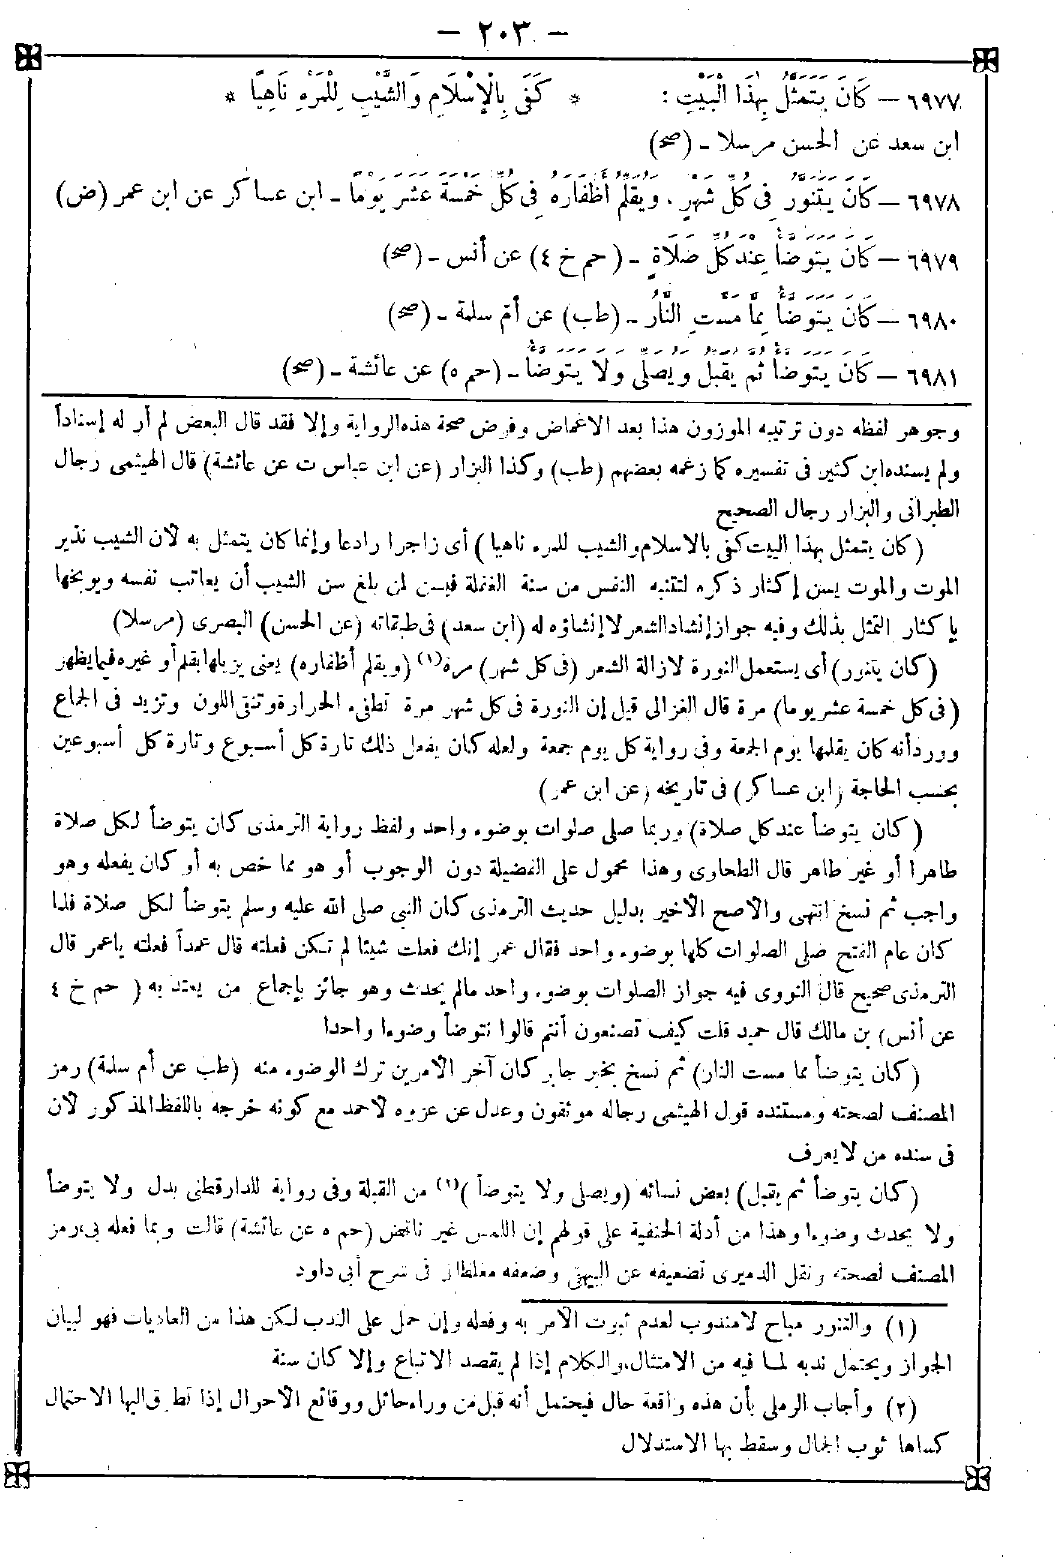 — ٢٠٣ —
٦٩٧٧ — كَانَ يَتَمَثَّلُ بِهٰذَا الْبَيْتِ : * كَفَى بِالْإِسْلَامِ وَالشَّيْبِ لِلْمَرْءِ نَاهِيًا *
ابن سعد عن الحسن مرسلا - (صح)
٦٩٧٨ — كَانَ يَتَنَوَّرُ فِى كُلِّ شَهْرٍ ، وَيُقَلِّمُ أَظْفَارَهُ فِى كُلِّ خَمْسَةَ عَشَرَ يَوْمًا - ابن عساكر عن ابن عمر (ض)
٦٩٧٩ — كَانَ يَتَوَضَّأُ عِنْدَ كُلِّ صَلَاةٍ - (حم خ ٤) عن أنس - (صح)
٦٩٨٠ — كَانَ يَتَوَضَّأُ مِمَّا مَسَّتِ النَّارُ - (طب) عن أم سلمة - (صح)
٦٩٨١ — كَانَ يَتَوَضَّأُ ثُمَّ يُقَبِّلُ وَيُصَلِّى وَلَا يَتَوَضَّأُ - (حم ه) عن عائشة - (صح)
وجوهر لفظه دون ترتيبه الموزون هذا بعد الاغماض وفرض صحة هذه الرواية وإلا فقد قال البعض لم أر له إسناداً
ولم يسنده ابن كثير فى تفسيره كما زعمه بعضهم (طب) وكذا البزار (عن ابن عباس ت عن عائشة) قال الهيثمى رجال
الطبرانى والبزار رجال الصحيح
(كان يتمثل بهذا البيت كفى بالاسلام والشيب للمرء ناهيا) أى زاجرا رادعا وإنما كان يتمثل به لأن الشيب نذير
الموت والموت يسن إكثار ذكره لتتنبه النفس من سنة الغفلة فيسن لمن بلغ سن الشيب أن يعاتب نفسه ويوبخها
بإكثار التمثل بذلك وفيه جواز إنشاد الشعر لا إنشاؤه له (ابن سعد) فى طبقاته (عن الحسن) البصرى (مرسلا)
(كان يتنور) أى يستعمل النورة لإزالة الشعر (فى كل شهر) مرة (١) (ويقلم أظفاره) يعنى يزيلها بقلم أو غيره فيما يظهر
(فى كل خمسة عشر يوما) مرة قال الغزالى قيل إن النورة فى كل شهر مرة تطفىء الحرارة وتنقى اللون وتزيد فى الجماع
وورد أنه كان يقلمها يوم الجمعة وفى رواية كل يوم جمعة ولعله كان يفعل ذلك تارة كل أسبوع وتارة كل أسبوعين
بحسب الحاجة (ابن عساكر) فى تاريخه (عن ابن عمر)
(كان يتوضأ عند كل صلاة) وربما صلى صلوات بوضوء واحد ولفظ رواية الترمذى كان يتوضأ لكل صلاة
طاهرا أو غير طاهر قال الطحاوى وهذا محمول على الفضيلة دون الوجوب أو هو مما خص به أو كان يفعله وهو
واجب ثم نسخ انتهى والأصح الأخير بدليل حديث الترمذى كان النبى صلى الله عليه وسلم يتوضأ لكل صلاة فلما
كان عام الفتح صلى الصلوات كلها بوضوء واحد فقال عمر إنك فعلت شيئا لم تكن فعلته قال عمداً فعلته ياعمر قال
الترمذى صحيح قال النووى فيه جواز الصلوات بوضوء واحد مالم يحدث وهو جائز بإجماع من يعتد به (حم خ ٤
عن أنس) بن مالك قال حميد قلت كيف تصنعون أنتم قالوا نتوضأ وضوءا واحدا
(كان يتوضأ مما مست النار) ثم نسخ بخبر جابر كان آخر الأمرين ترك الوضوء منه (طب عن أم سلمة) رمز
المصنف لصحته ومستنده قول الهيثمى رجاله موثقون وعدل عن عزوه لأحمد مع كونه خرجه باللفظ المذكور لأن
فى سنده من لا يعرف
(كان يتوضأ ثم يقبل) بعض نسائه (ويصلى ولا يتوضأ) (١) من القبلة وفى رواية للدارقطنى بدل ولا يتوضأ
ولا يحدث وضوءا وهذا من أدلة الحنفية على قولهم إن اللمس غير ناقض (حم ه عن عائشة) قالت وربما فعله بى رمز
المصنف لصحته ونقل الدميرى تضعيفه عن البيهقى وضعفه مغلطاى فى شرح أبى داود
(١) والتنور مباح لا مندوب لعدم ثبوت الأمر به وفعله وإن حمل على الندب لكن هذا من العاديات فهو لبيان
الجواز ويحتمل ندبه لما فيه من الامتثال، والكلام إذا لم يقصد الاتباع وإلا كان سنة
(٢) وأجاب الرملى بأن هذه واقعة حال فيحتمل أنه قبل من وراء حائل ووقائع الأحوال إذا تطرق إليها الاحتمال
كساها ثوب الإجمال وسقط بها الاستدلال